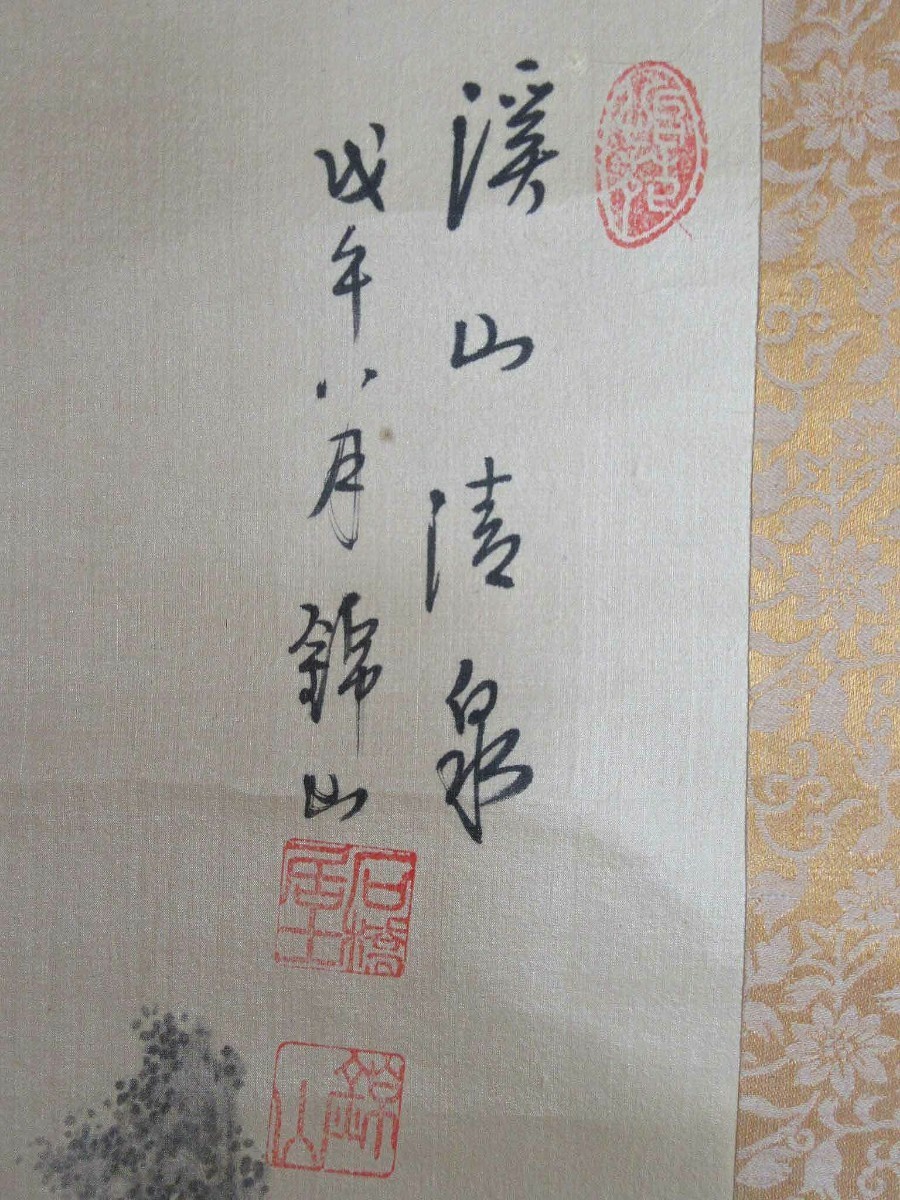 溪山清泉
戊午八月錦山
石橋居士
錦山